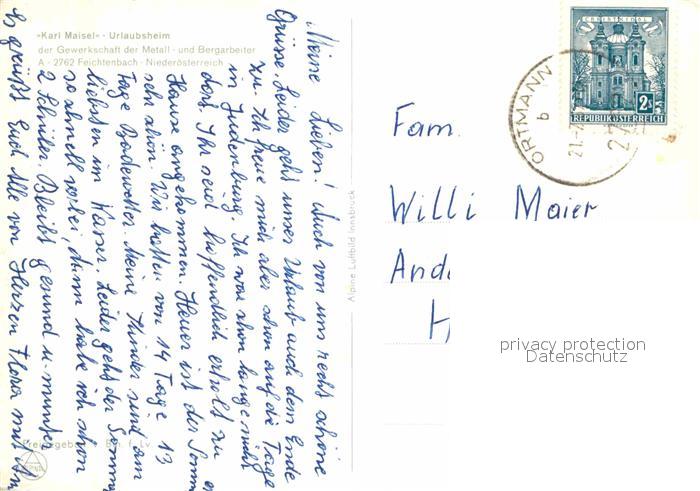 »Karl Maisel« · Urlaubsheim
der Gewerkschaft der Metall- und Bergarbeiter
A - 2762 Feichtenbach · Niederösterreich
Meine Lieben! Auch von uns recht schöne
Grüsse. Leider geht unser Urlaub auch dem Ende
zu. Ich freue mich aber schon auf die Tage
in Judenburg. Ich war schon lange nicht
dort. Ihr seid hoffendlich erholt zu
Hause angekommen. Heuer ist der Somm
sehr schön. Wir hatten von 14 Tage 13
Tage Badewetter. Meine Kinder sind am
liebsten im Wasser. Leider geht der Somm
so schnell vorbei, dann habe ich schon
2 Schüler. Bleibt gesund u. munter
Es grüßt Euch Alle von Herzen Flora mit
Freigegeben v. B.m.f. Lv.
ALPINE
Alpine Luftbild Innsbruck
CHRISTKINDL
2 S
REPUBLIK ÖSTERREICH
ORTMANN
b
21.-7.
Fam.
Willi Maier
And
H
privacy protection
Datenschutz